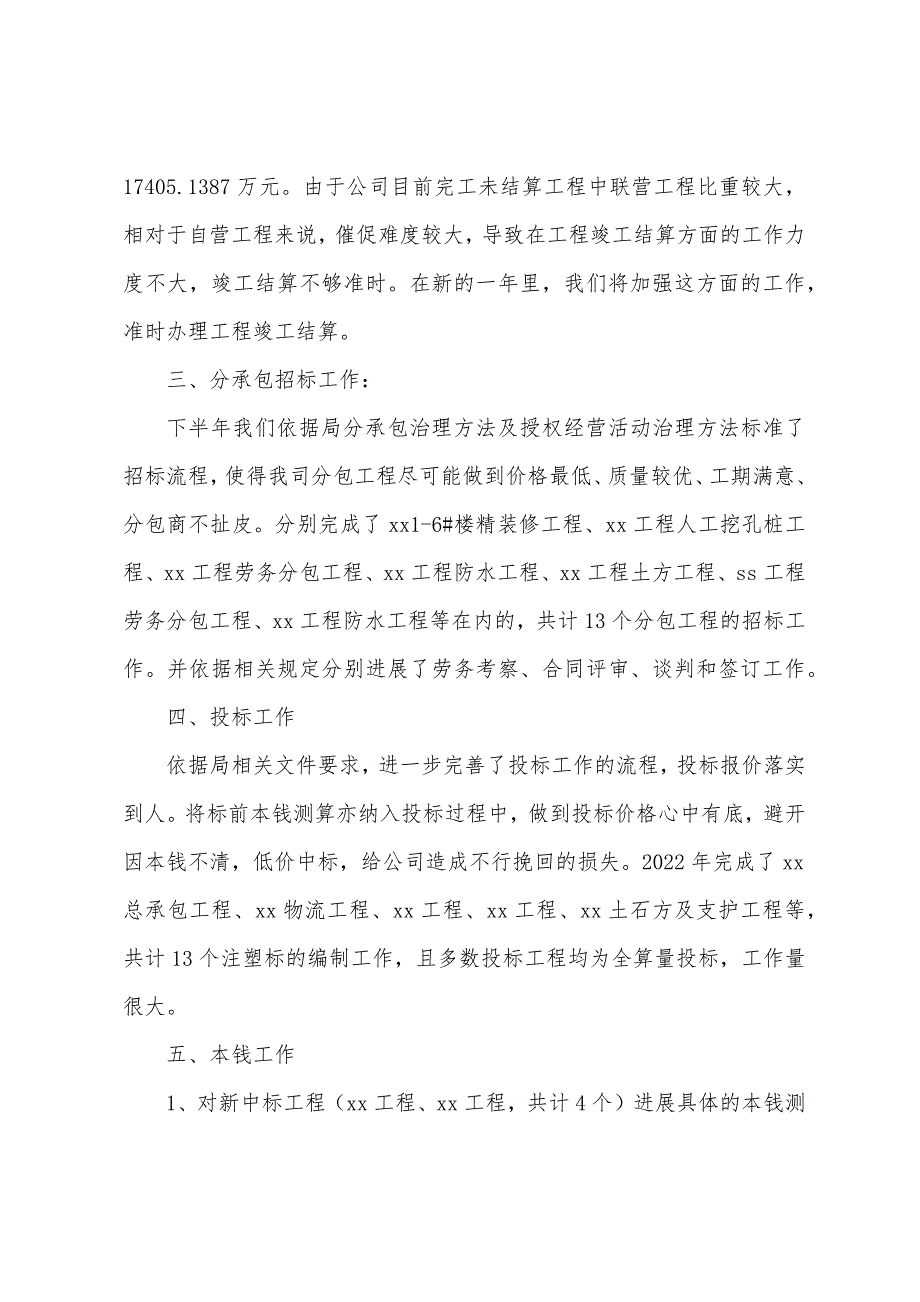 17405.1387 万元。由于公司目前完工未结算工程中联营工程比重较大，
相对于自营工程来说，催促难度较大，导致在工程竣工结算方面的工作力
度不大，竣工结算不够准时。在新的一年里，我们将加强这方面的工作，
准时办理工程竣工结算。
三、分承包招标工作：
下半年我们依据局分承包治理方法及授权经营活动治理方法标准了
招标流程，使得我司分包工程尽可能做到价格最低、质量较优、工期满意、
分包商不扯皮。分别完成了 xx1-6#楼精装修工程、xx 工程人工挖孔桩工
程、xx 工程劳务分包工程、xx 工程防水工程、xx 工程土方工程、ss 工程
劳务分包工程、xx 工程防水工程等在内的，共计 13 个分包工程的招标工
作。并依据相关规定分别进展了劳务考察、合同评审、谈判和签订工作。
四、投标工作
依据局相关文件要求，进一步完善了投标工作的流程，投标报价落实
到人。将标前本钱测算亦纳入投标过程中，做到投标价格心中有底，避开
因本钱不清，低价中标，给公司造成不行挽回的损失。2022 年完成了 xx
总承包工程、xx 物流工程、xx 工程、xx 工程、xx 土石方及支护工程等，
共计 13 个注塑标的编制工作，且多数投标工程均为全算量投标，工作量
很大。
五、本钱工作
1、对新中标工程（xx 工程、xx 工程，共计 4 个）进展具体的本钱测